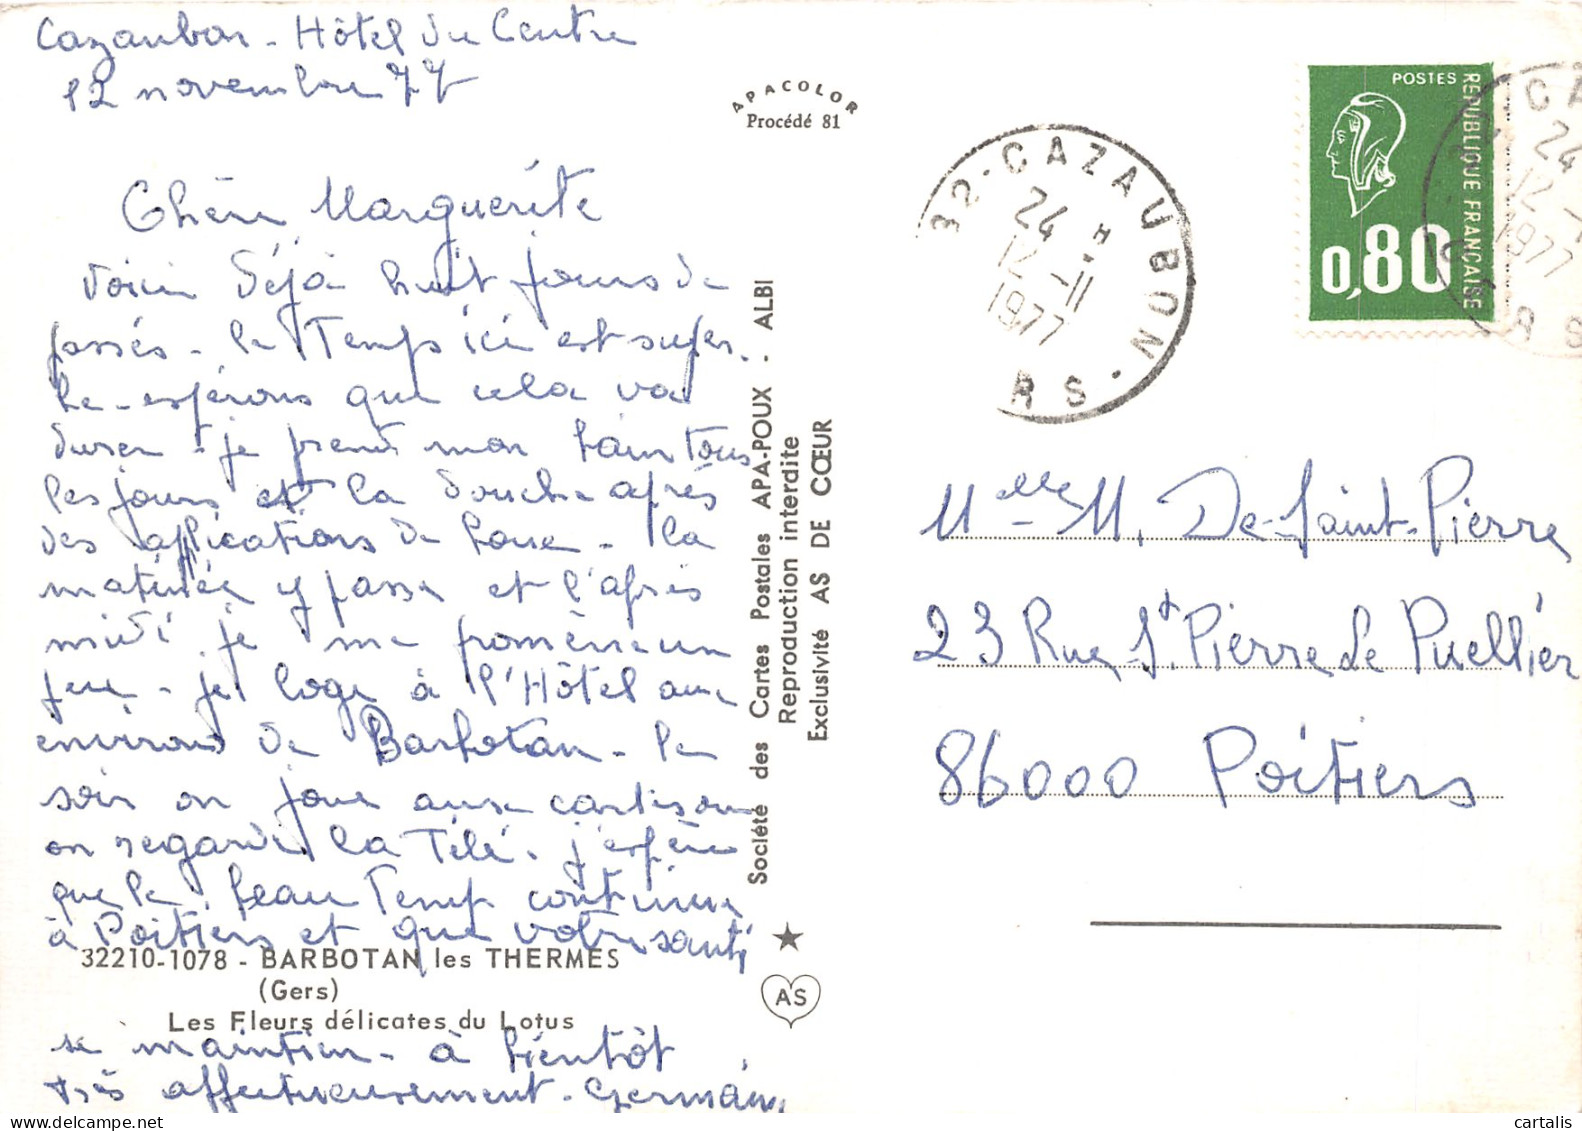 Cazaubon - Hôtel du Centre
12 novembre 77
Chère Marguerite
Voici déjà huit jours de
passés - le Temps ici est super
be - espérons que cela va
durer - je prend mon bain tous
les jours et la douche après
des applications de boue - la
matinée y passe et l'après
midi je me promène un
peu - je loge à l'Hôtel aux
environs de Barbotan - le
soir on joue aux cartes ou
on regarde la Télé - j'espère
que le beau Temps continue
à Poitiers et que votre santé
32210-1078 - BARBOTAN les THERMES
(Gers)
Les Fleurs délicates du Lotus
se maintien - à bientôt
très affectueusement - Germaine
APACOLOR
Procédé 81
Société des Cartes Postales APA-POUX - ALBI
Reproduction interdite
Exclusivité AS DE CŒUR
AS
32 - CAZAUBON -
24 H
12 -11
1977
RS
POSTES
REPUBLIQUE FRANÇAISE
0,80
CA
24
12 -1
1977
RS
Melle M. De-Saint-Pierre
23 Rue St. Pierre Le Puellier
86000 Poitiers
cartalis